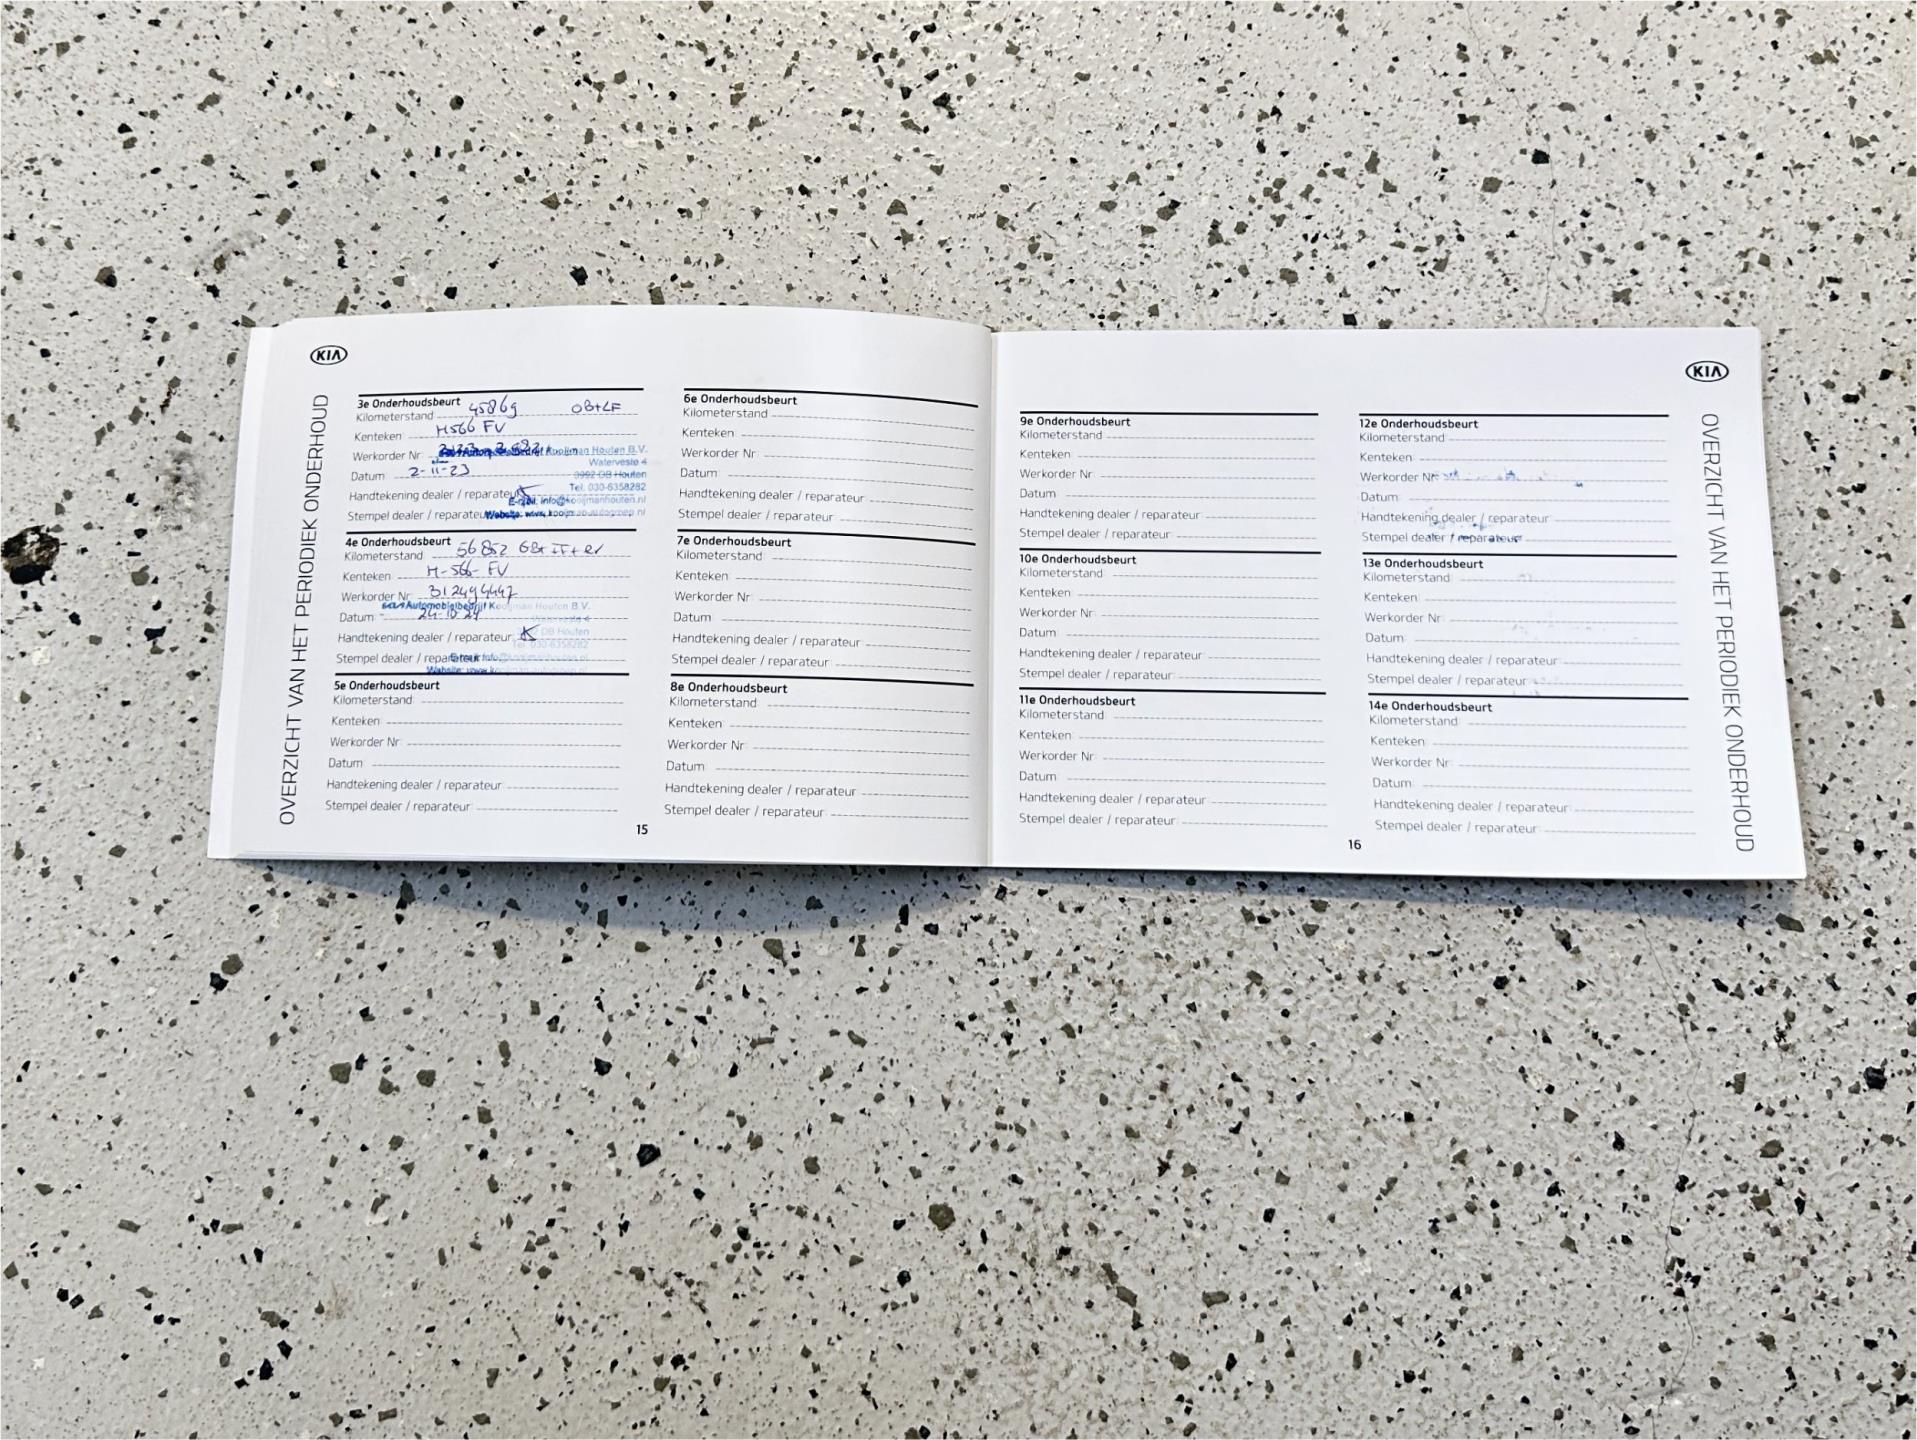 KIA
OVERZICHT VAN HET PERIODIEK ONDERHOUD
3e Onderhoudsbeurt
Kilometerstand 45869 OB+LF
Kenteken H566 FV
Werkorder Nr. Kooijman Houten B.V.
Waterveste 4
Datum 2-11-23 3992 DB Houten
Tel: 030-6358282
Handtekening dealer / reparateur
E-mail: info@kooijmanhouten.nl
Stempel dealer / reparateur Website: www.kooijman-autogroep.nl
4e Onderhoudsbeurt
Kilometerstand 56852
Kenteken H-566-FV
Werkorder Nr.
Automobielbedrijf Kooijman Houten B.V.
Datum 24-10-24 Waterveste 4
DB Houten
Handtekening dealer / reparateur:
Tel: 030-6358282
Stempel dealer / reparateur E-mail: info@kooijmanhouten.nl
Website: www.kooijman-autogroep.nl
5e Onderhoudsbeurt
Kilometerstand
Kenteken
Werkorder Nr.
Datum
Handtekening dealer / reparateur:
Stempel dealer / reparateur:
6e Onderhoudsbeurt
Kilometerstand
Kenteken:
Werkorder Nr:
Datum:
Handtekening dealer / reparateur:
Stempel dealer / reparateur:
7e Onderhoudsbeurt
Kilometerstand:
Kenteken:
Werkorder Nr:
Datum:
Handtekening dealer / reparateur:
Stempel dealer / reparateur:
8e Onderhoudsbeurt
Kilometerstand:
Kenteken:
Werkorder Nr:
Datum:
Handtekening dealer / reparateur:
Stempel dealer / reparateur:
15
KIA
OVERZICHT VAN HET PERIODIEK ONDERHOUD
9e Onderhoudsbeurt
Kilometerstand:
Kenteken:
Werkorder Nr:
Datum:
Handtekening dealer / reparateur:
Stempel dealer / reparateur:
10e Onderhoudsbeurt
Kilometerstand:
Kenteken:
Werkorder Nr:
Datum:
Handtekening dealer / reparateur:
Stempel dealer / reparateur:
11e Onderhoudsbeurt
Kilometerstand:
Kenteken:
Werkorder Nr:
Datum:
Handtekening dealer / reparateur:
Stempel dealer / reparateur:
12e Onderhoudsbeurt
Kilometerstand:
Kenteken:
Werkorder Nr:
Datum:
Handtekening dealer / reparateur:
Stempel dealer / reparateur:
13e Onderhoudsbeurt
Kilometerstand:
Kenteken:
Werkorder Nr:
Datum:
Handtekening dealer / reparateur:
Stempel dealer / reparateur:
14e Onderhoudsbeurt
Kilometerstand:
Kenteken:
Werkorder Nr:
Datum:
Handtekening dealer / reparateur:
Stempel dealer / reparateur:
16